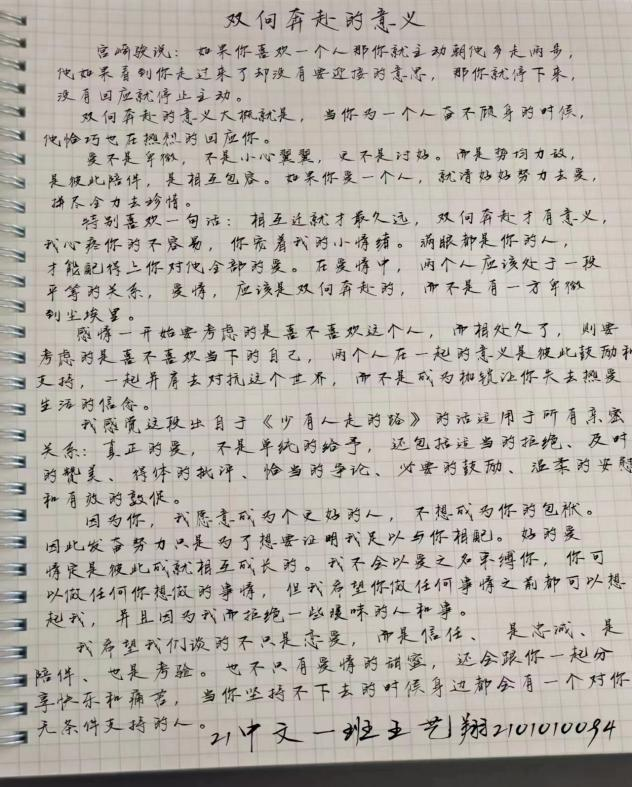 双向奔赴的意义
宫崎骏说：如果你喜欢一个人那你就主动朝他多走两步，
他如果看到你走过来了却没有要迎接的意思，那你就停下来，
没有回应就停止主动。
双向奔赴的意义大概就是，当你为一个人奋不顾身的时候，
他恰巧也在热烈的回应你。
爱不是卑微，不是小心翼翼，更不是讨好。而是势均力敌，
是彼此陪伴，是相互包容。如果你爱一个人，就请好好努力去爱，
拼尽全力去珍惜。
特别喜欢一句话：相互迁就才最久远，双向奔赴才有意义，
我心疼你的不容易，你宠着我的小情绪。满眼都是你的人，
才能配得上你对他全部的爱。在爱情中，两个人应该处于一段
平等的关系，爱情，应该是双向奔赴的，而不是有一方卑微
到尘埃里。
感情一开始要考虑的是喜不喜欢这个人，而相处久了，则要
考虑的是喜不喜欢当下的自己，两个人在一起的意义是彼此鼓励和
支持，一起并肩去对抗这个世界，而不是成为枷锁让你失去热爱
生活的信念。
我感觉这段出自于《少有人走的路》的话适用于所有亲密
关系：真正的爱，不是单纯的给予，还包括适当的拒绝、及时
的赞美、得体的批评、恰当的争论、必要的鼓励、温柔的安慰
和有效的敦促。
因为你，我愿意成为个更好的人，不想成为你的包袱。
因此发奋努力只是为了想要证明我足以与你相配。好的爱
情定是彼此成就相互成长的。我不会以爱之名束缚你，你可
以做任何你想做的事情，但我希望你做任何事情之前都可以想
起我，并且因为我而拒绝一些暧昧的人和事。
我希望我们谈的不只是恋爱，而是信任、是忠诚、是
陪伴、也是考验。也不只有爱情的甜蜜，还会跟你一起分
享快乐和痛苦，当你坚持不下去的时候身边都会有一个对你
无条件支持的人。
21中文一班王艺翔2101010094